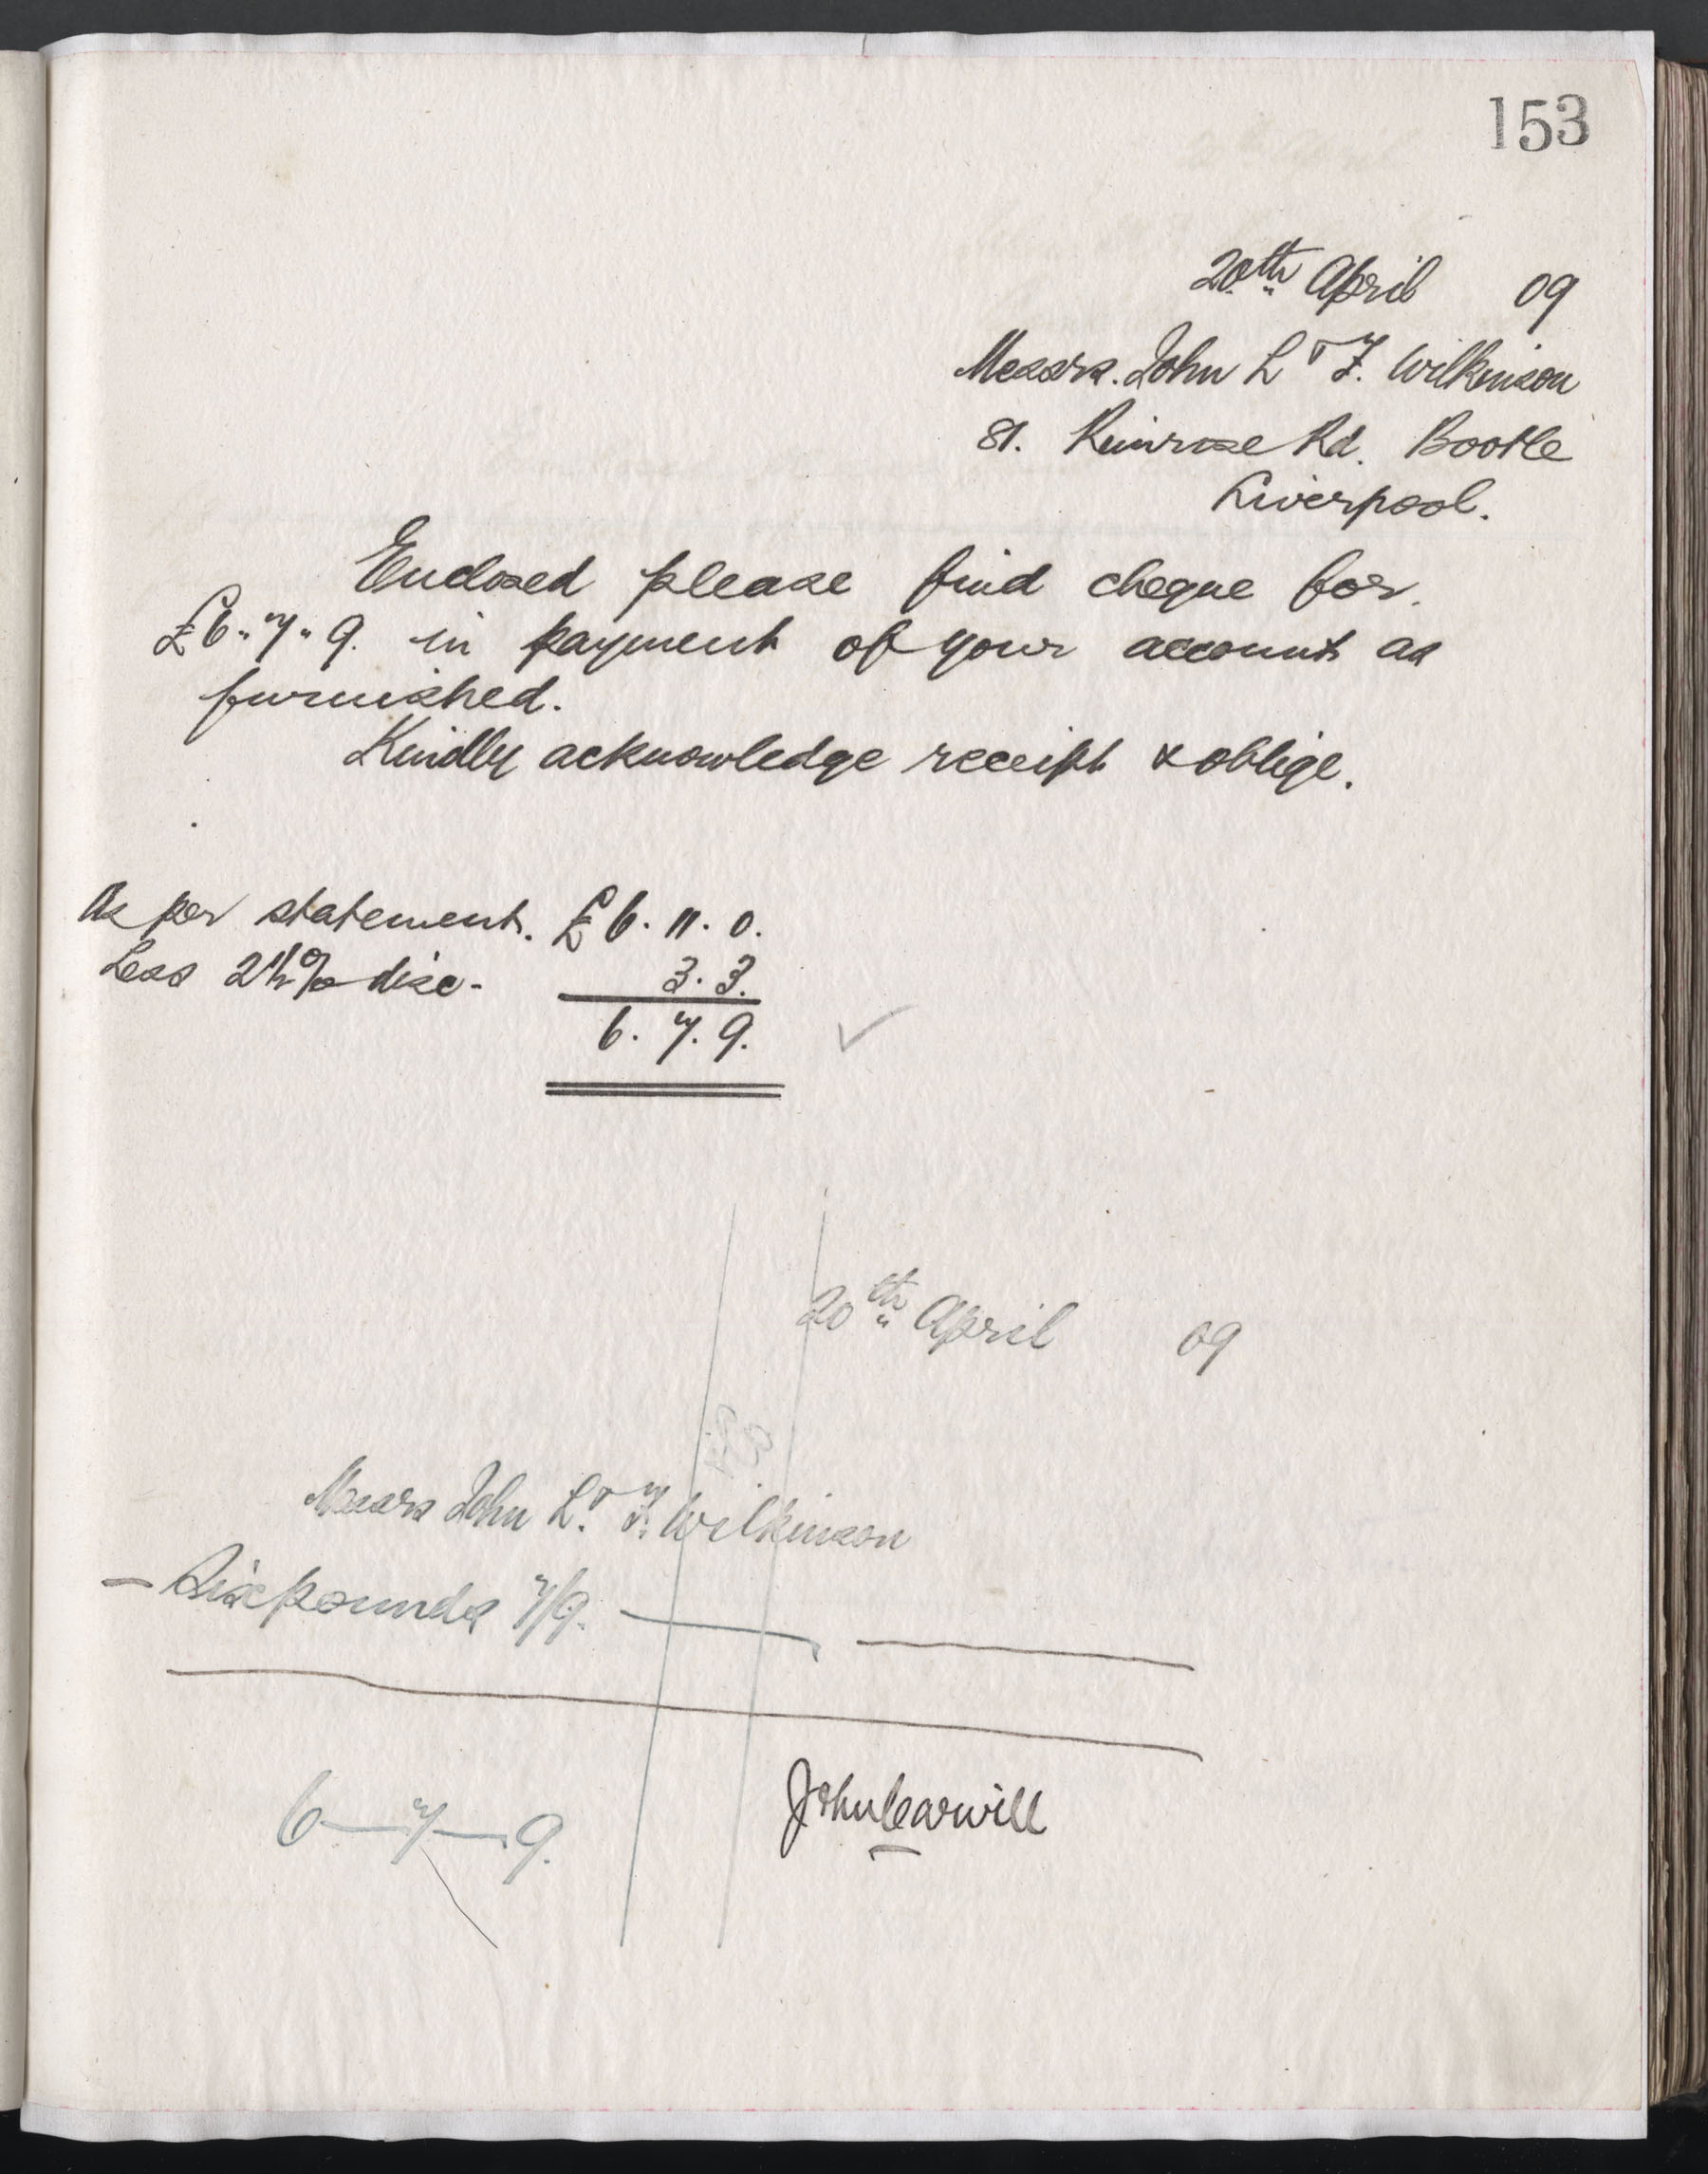 153
20th April 09
Messrs. John L & F. Wilkinson
81. Rimrose Rd. Bootle
Liverpool.
Enclosed please find cheque for
£6.,7.,9. in payment of your account as
furnished.
Kindly acknowledge receipt & oblige.
As per statement. £6. 11. 0.
Less 2½% disc. 3. 3.
6. 7. 9.
20th April 09
Messrs John L. & F. Wilkinson
Six pounds 7/9.
6—7—9.
John Carwill